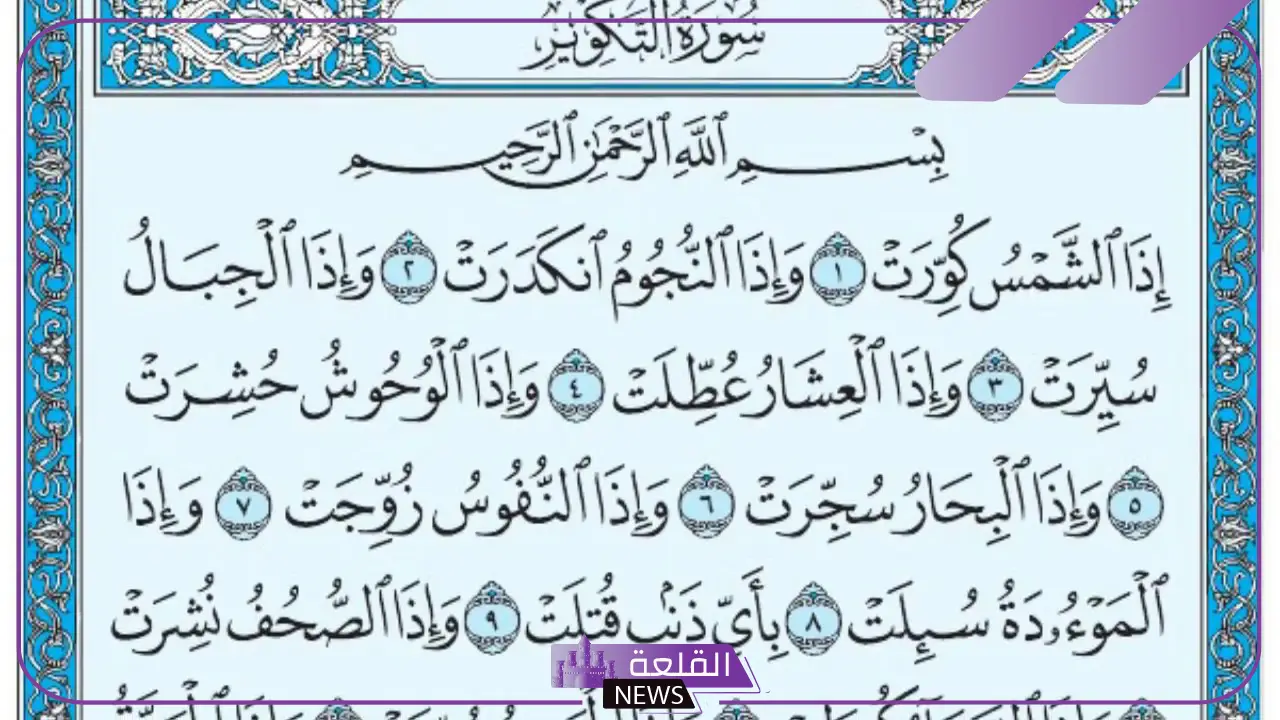 سُورَةُ التَّكْوِيرِ
بِسْمِ ٱللَّهِ ٱلرَّحْمَٰنِ ٱلرَّحِيمِ
إِذَا ٱلشَّمْسُ كُوِّرَتْ ١ وَإِذَا ٱلنُّجُومُ ٱنكَدَرَتْ ٢ وَإِذَا ٱلْجِبَالُ
سُيِّرَتْ ٣ وَإِذَا ٱلْعِشَارُ عُطِّلَتْ ٤ وَإِذَا ٱلْوُحُوشُ حُشِرَتْ
٥ وَإِذَا ٱلْبِحَارُ سُجِّرَتْ ٦ وَإِذَا ٱلنُّفُوسُ زُوِّجَتْ ٧ وَإِذَا
ٱلْمَوْءُۥدَةُ سُئِلَتْ ٨ بِأَيِّ ذَنۢبٍ قُتِلَتْ ٩ وَإِذَا ٱلصُّحُفُ نُشِرَتْ
القلعة
NEWS